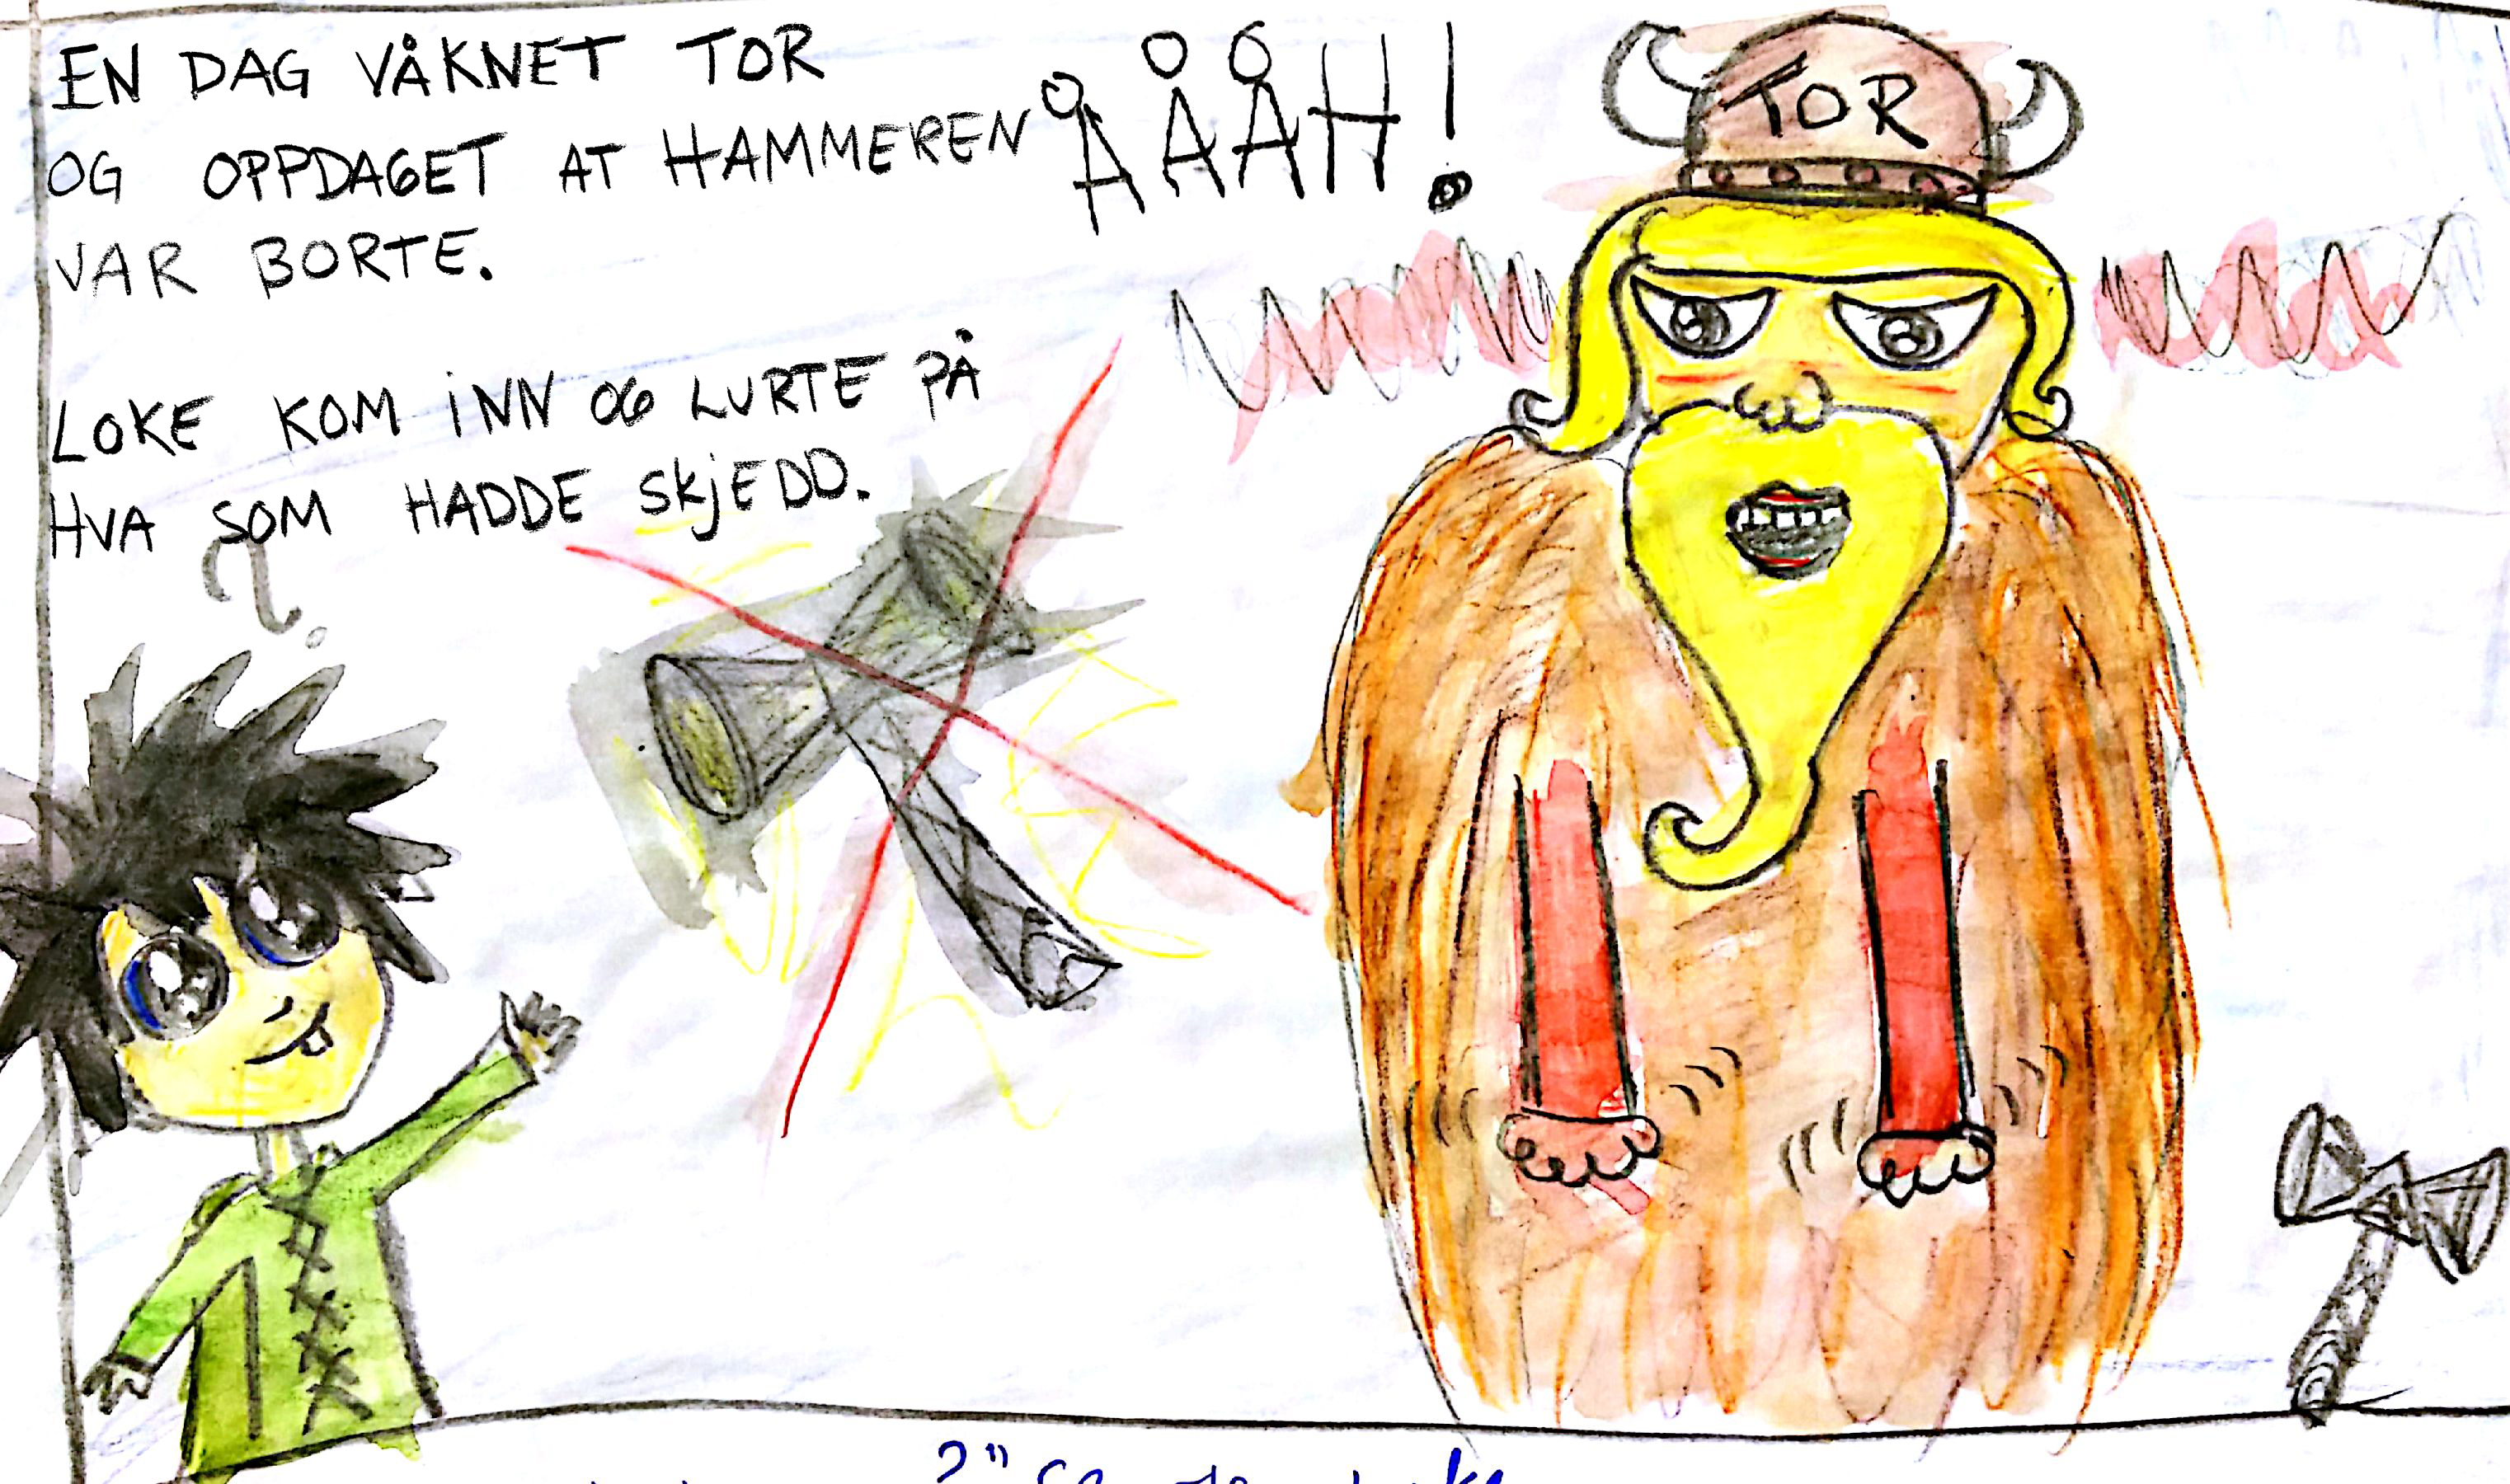 EN DAG VÅKNET TOR
OG OPPDAGET AT HAMMEREN
VAR BORTE.
ÅÅÅH!
TOR
LOKE KOM INN OG LURTE PÅ
HVA SOM HADDE SKJEDD.
?